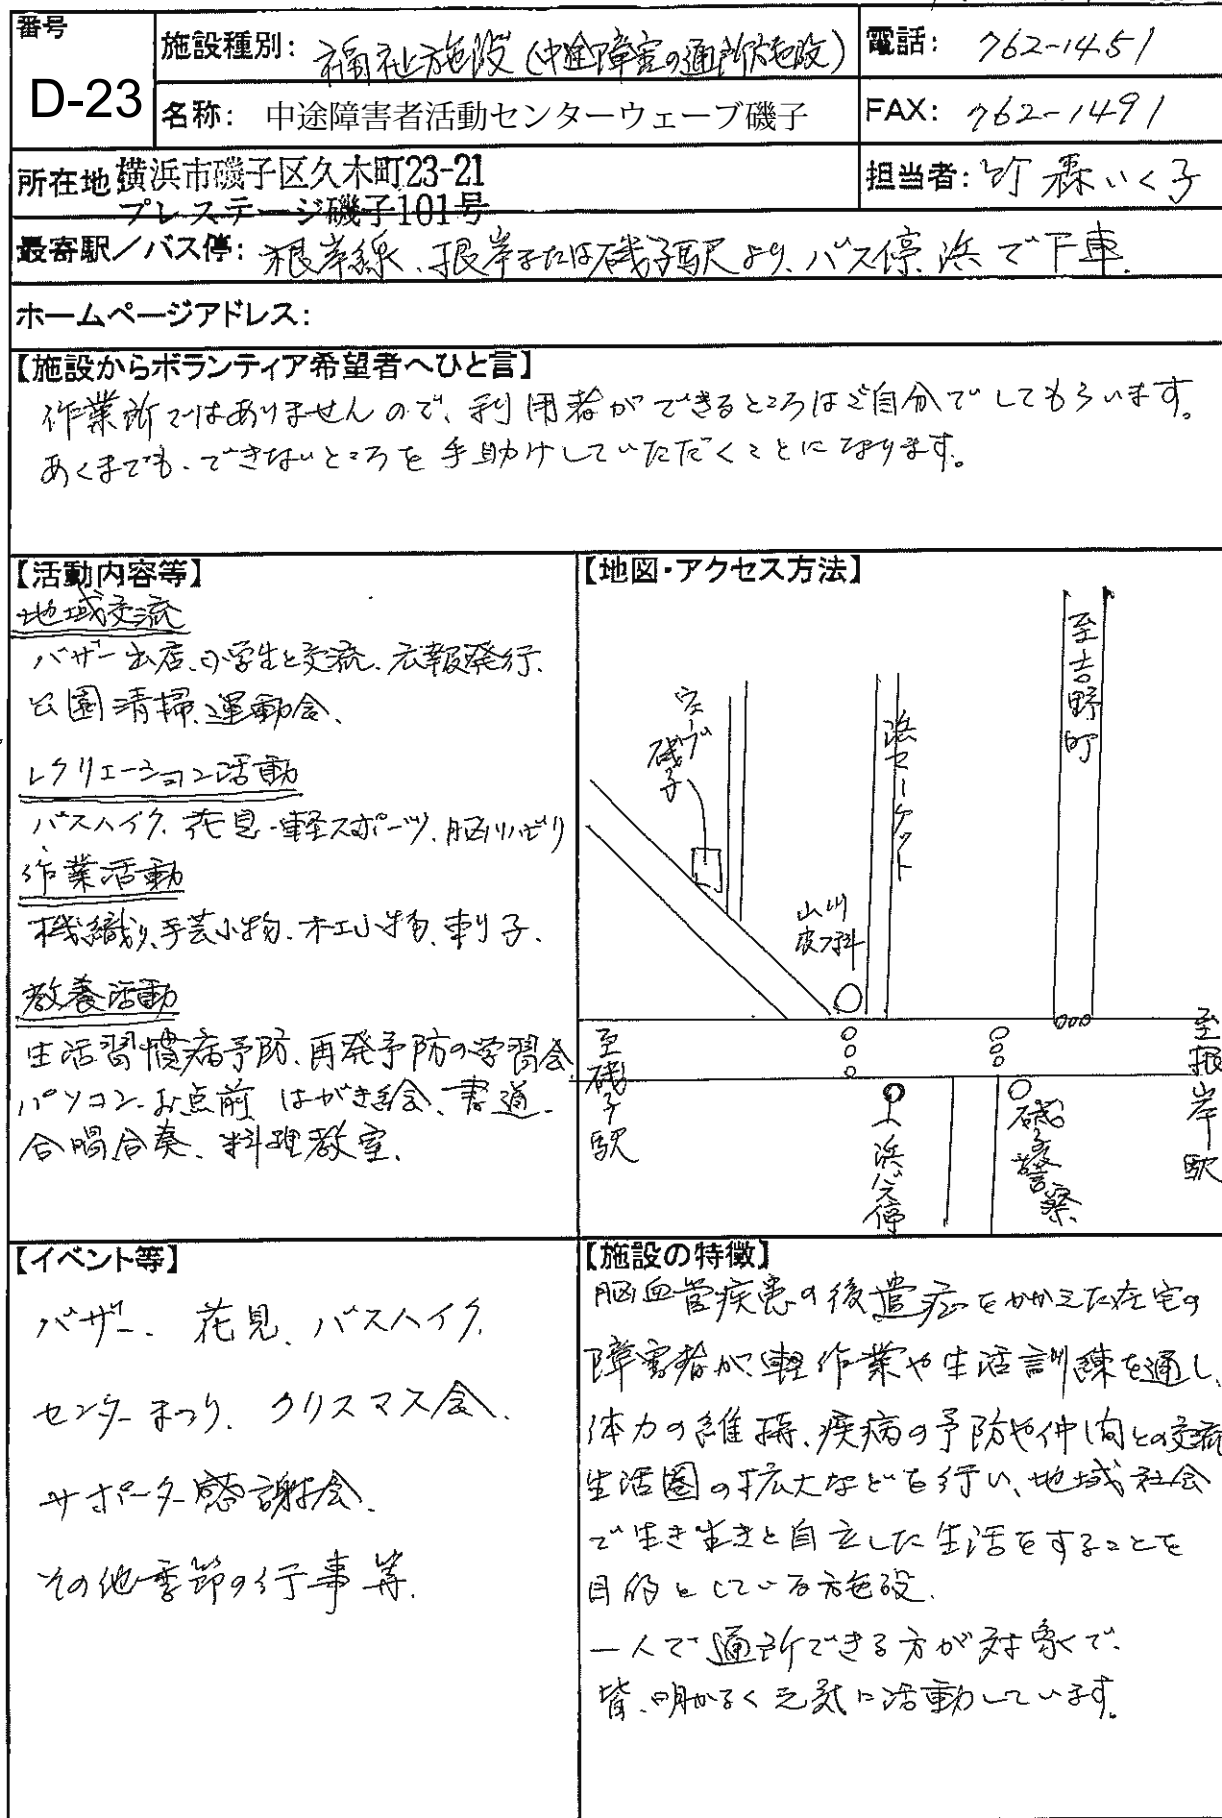 番号
D-23
施設種別: 福祉施設(中途障害の通所施設)
電話: 762-1451
名称: 中途障害者活動センターウェーブ磯子
FAX: 762-1491
所在地 横浜市磯子区久木町23-21
プレステージ磯子101号
担当者: 竹森いく子
最寄駅/バス停: 根岸線、根岸または磯子駅より、バス停 浜で下車.
ホームページアドレス:
【施設からボランティア希望者へひと言】
作業所ではありませんので、利用者ができるところはご自分でしてもらいます。
あくまでも、できないところを手助けしていただくことになります。
【活動内容等】
地域交流
バザー出店、小学生と交流、広報発行、
公園清掃、運動会、
レクリエーション活動
バスハイク、花見、軽スポーツ、脳リハビリ
作業活動
機織り、手芸小物、木工小物、刺し子、
教養活動
生活習慣病予防、再発予防の学習会
パソコン、お点前 はがき絵、書道、
合唱合奏、料理教室.
【地図・アクセス方法】
至吉野町
ウェーブ
磯子
浜マーケット
山川
皮フ科
至磯子駅
至根岸駅
浜バス停
磯子警察
【イベント等】
バザー、花見、バスハイク、
センターまつり、クリスマス会、
サポーター感謝会、
その他季節の行事等.
【施設の特徴】
脳血管疾患の後遺症をかかえた在宅の
障害者が、軽作業や生活訓練を通し、
体力の維持、疾病の予防や仲間との交流
生活圏の拡大などを行い、地域社会
で生き生きと自立した生活をすることを
目的としている施設.
一人で通所できる方が対象で、
皆、明かるく元気に活動しています。